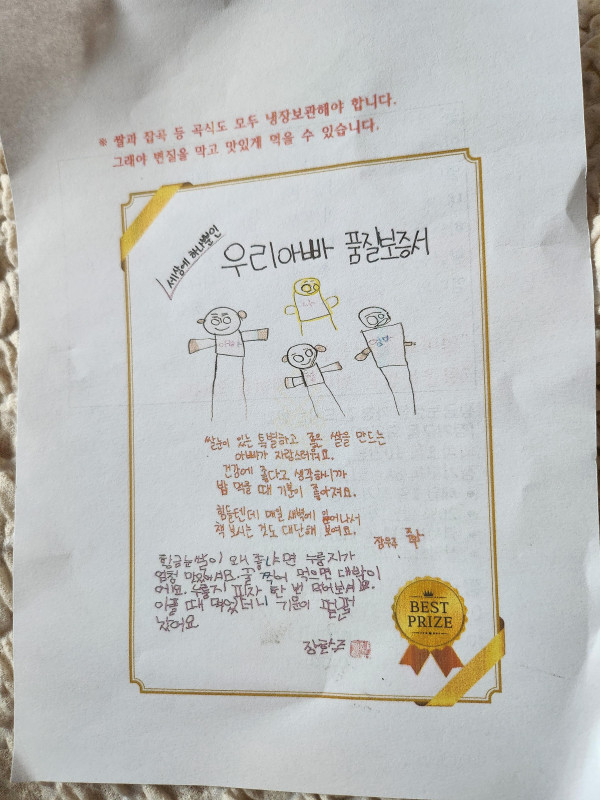 ※ 쌀과 잡곡 등 곡식도 모두 냉장보관해야 합니다.
그래야 변질을 막고 맛있게 먹을 수 있습니다.
세상에 하나뿐인
우리아빠 품질보증서
나
아빠
엄마
쌀눈이 있는 특별하고 좋은 쌀을 만드는
아빠가 자랑스러워요.
건강에 좋다고 생각하니까
밥 먹을 때 기분이 좋아져요.
힘들텐데 매일 새벽에 일어나서
책 보시는 것도 대단해 보여요.
황금눈쌀이 왜 좋냐면 누룽지가
엄청 맛있어요. 꿀 찍어 먹으면 대박이
에요. 누룽지 피자 한 번 먹어보세요.
아플 때 먹었더니 기운이 펄펄
났어요
BEST
PRIZE